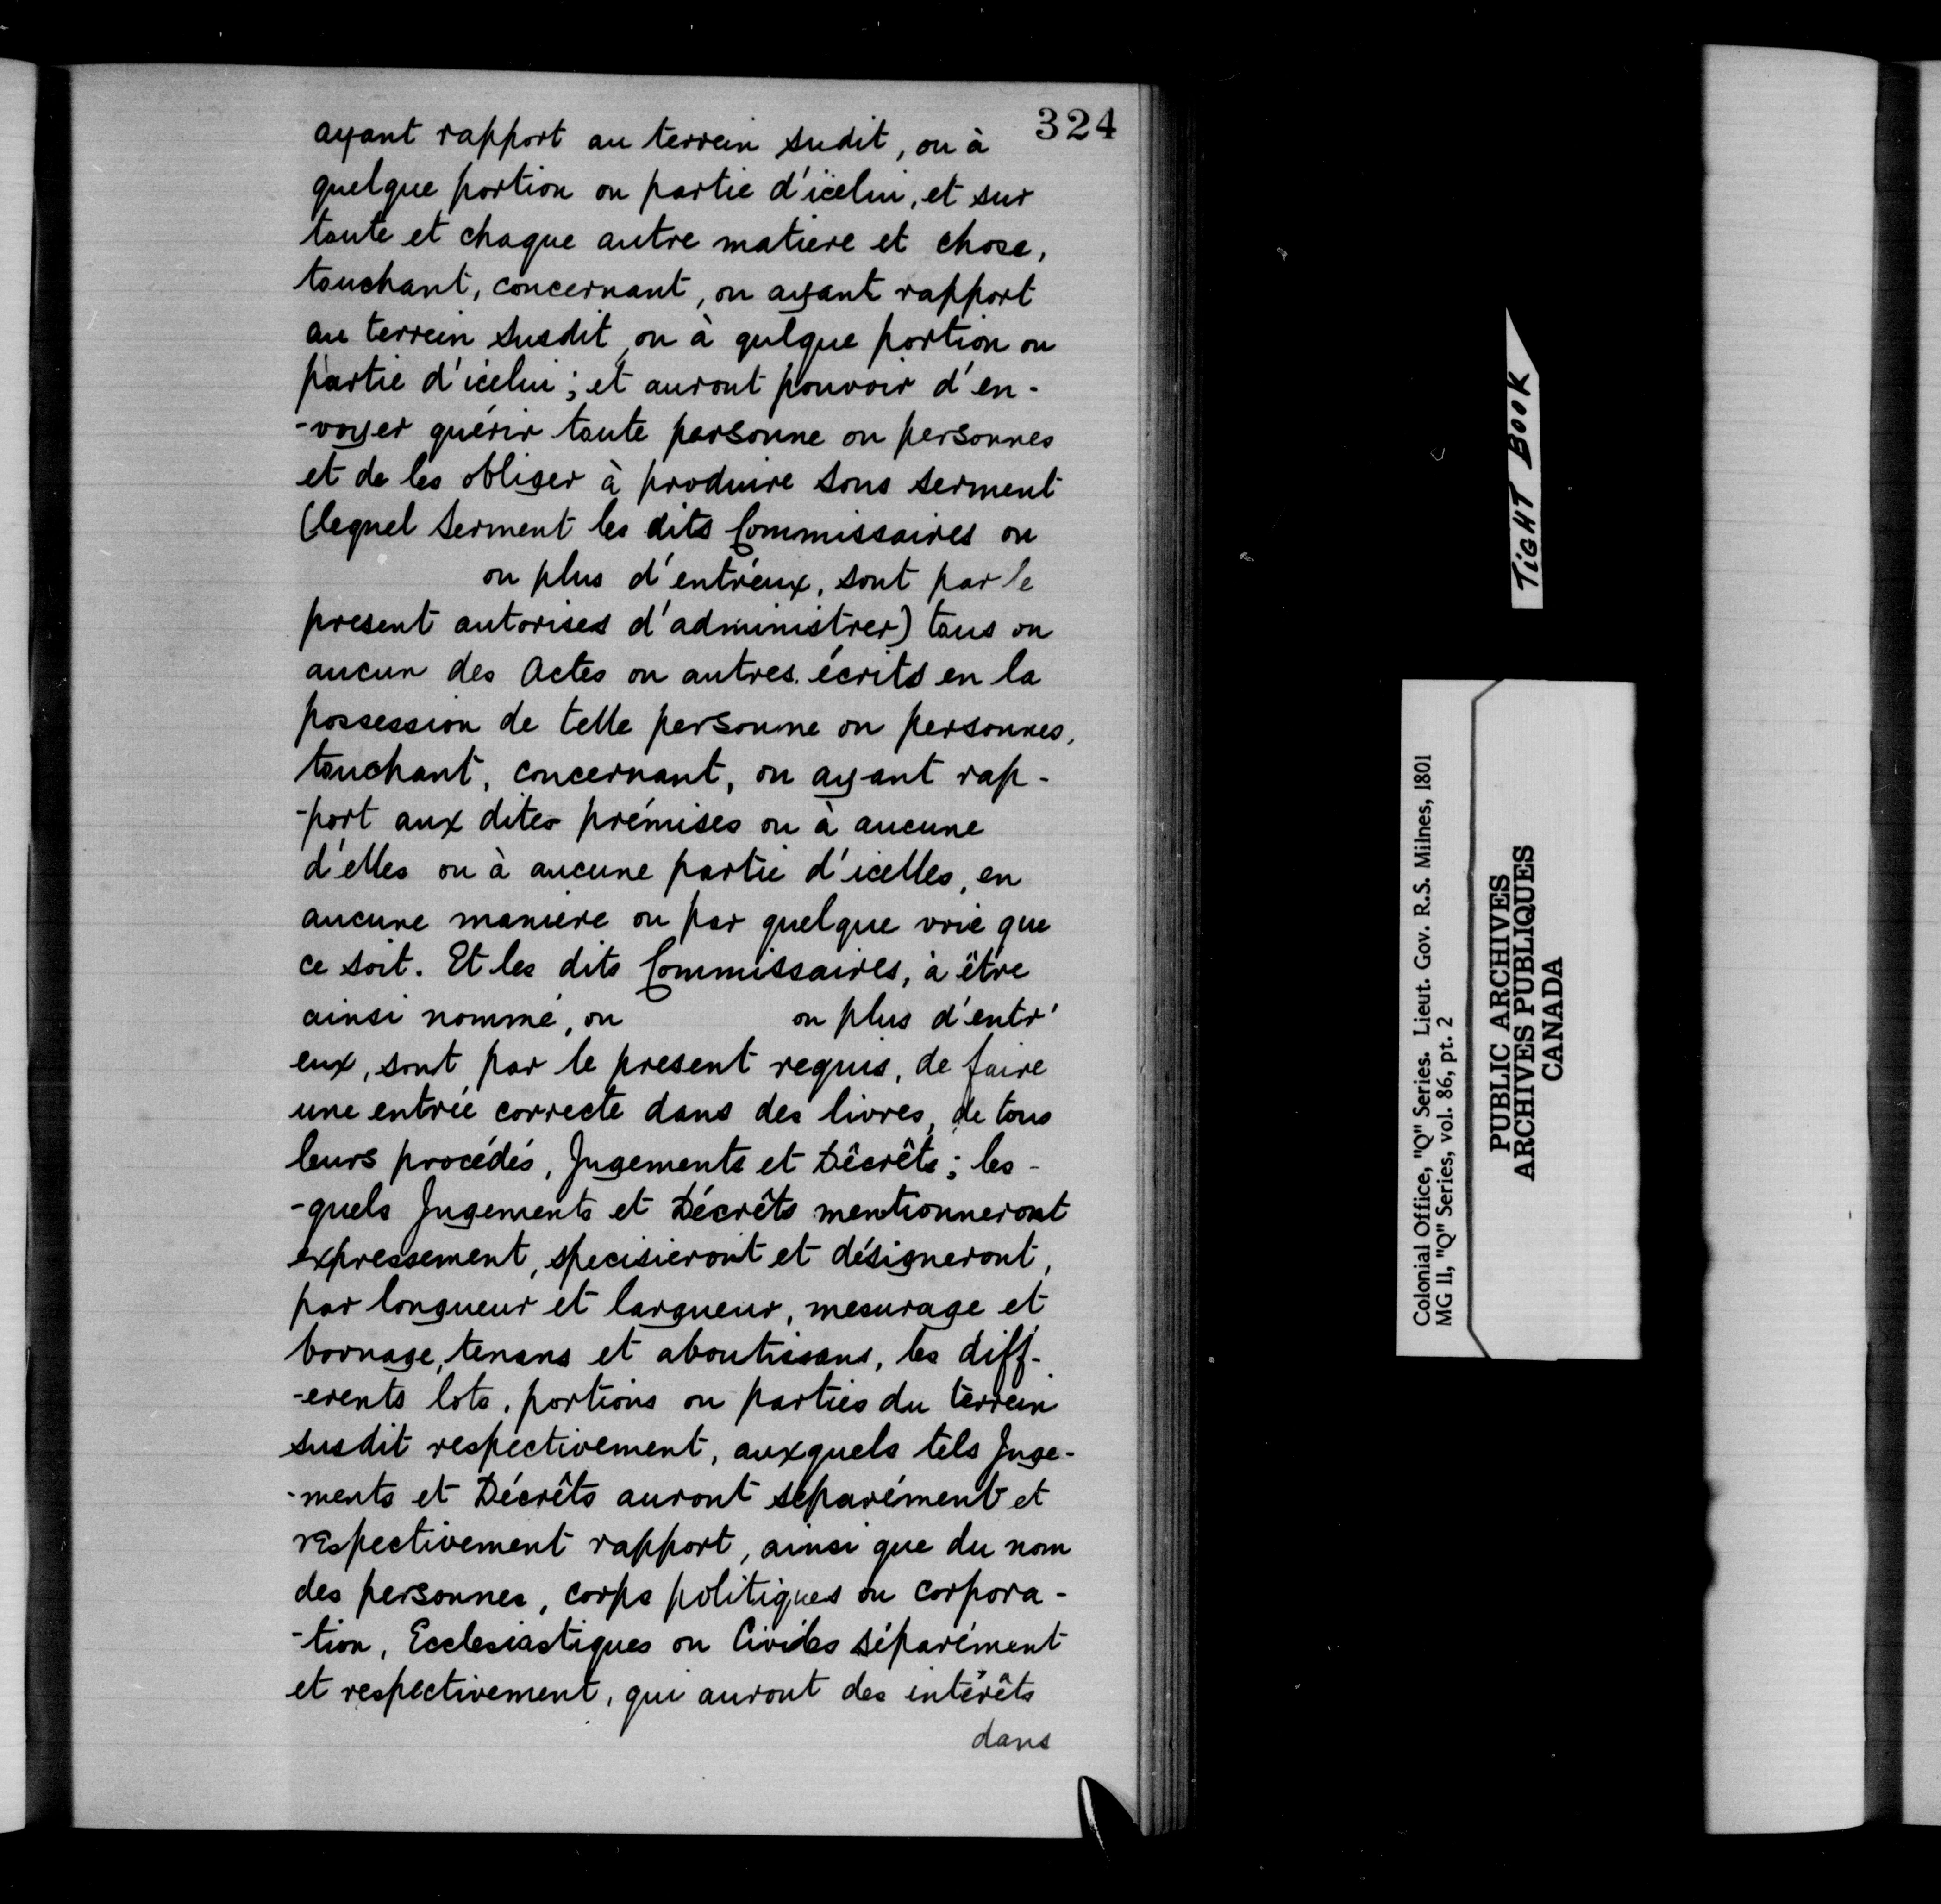 324
ayant rapport au terrein sudit, ou à
quelque portion ou partie d'icelui, et sur
toute et chaque autre matiere et chose,
touchant, concernant, ou ayant rapport
au terrein susdit, ou à qulque portion ou
partie d'icelui; et auront pouvoir d'en-
-voyer quérir toute personne ou personnes
et de les obliger à produire sous serment
(lequel Serment les dits Commissaires ou
ou plus d'entréux, sont par le
present autorises d'administrer) tous ou
aucun des Actes ou autres écrits en la
possession de telle personne ou personnes,
touchant, concernant, ou ayant rap-
-port aux dites prémises ou à aucune
d'elles ou à aucune partie d'icelles, en
aucune maniere ou par quelque voie que
ce soit. Et les dits Commissaires, à être
ainsi nommé, ou ou plus d'entr'
eux, sont par le present requis, de faire
une entrée correcte dans des livres, de tous
leurs procédés, Jugements et Décrêts; les-
-quels Jugements et Décrêts mentionneront
expressement, specisieront et désigneront,
par longueur et largueur, mesurage et
bornage, tenans et aboutissans, les diff-
-erents lots, portions ou parties du terrein
susdit respectivement, auxquels tels Juge-
-ments et Décrêts auront séparément et
respectivement rapport, ainsi que du nom
des personnes, corps politiques ou corpora-
-tion, Ecclesiastiques ou Civiles séparément
et respectivement, qui auront des intérêts
dans
TIGHT BOOK
Colonial Office, "Q" Series. Lieut. Gov. R.S. Milnes, 1801
MG 11, "Q" Series, vol. 86, pt. 2
PUBLIC ARCHIVES
ARCHIVES PUBLIQUES
CANADA